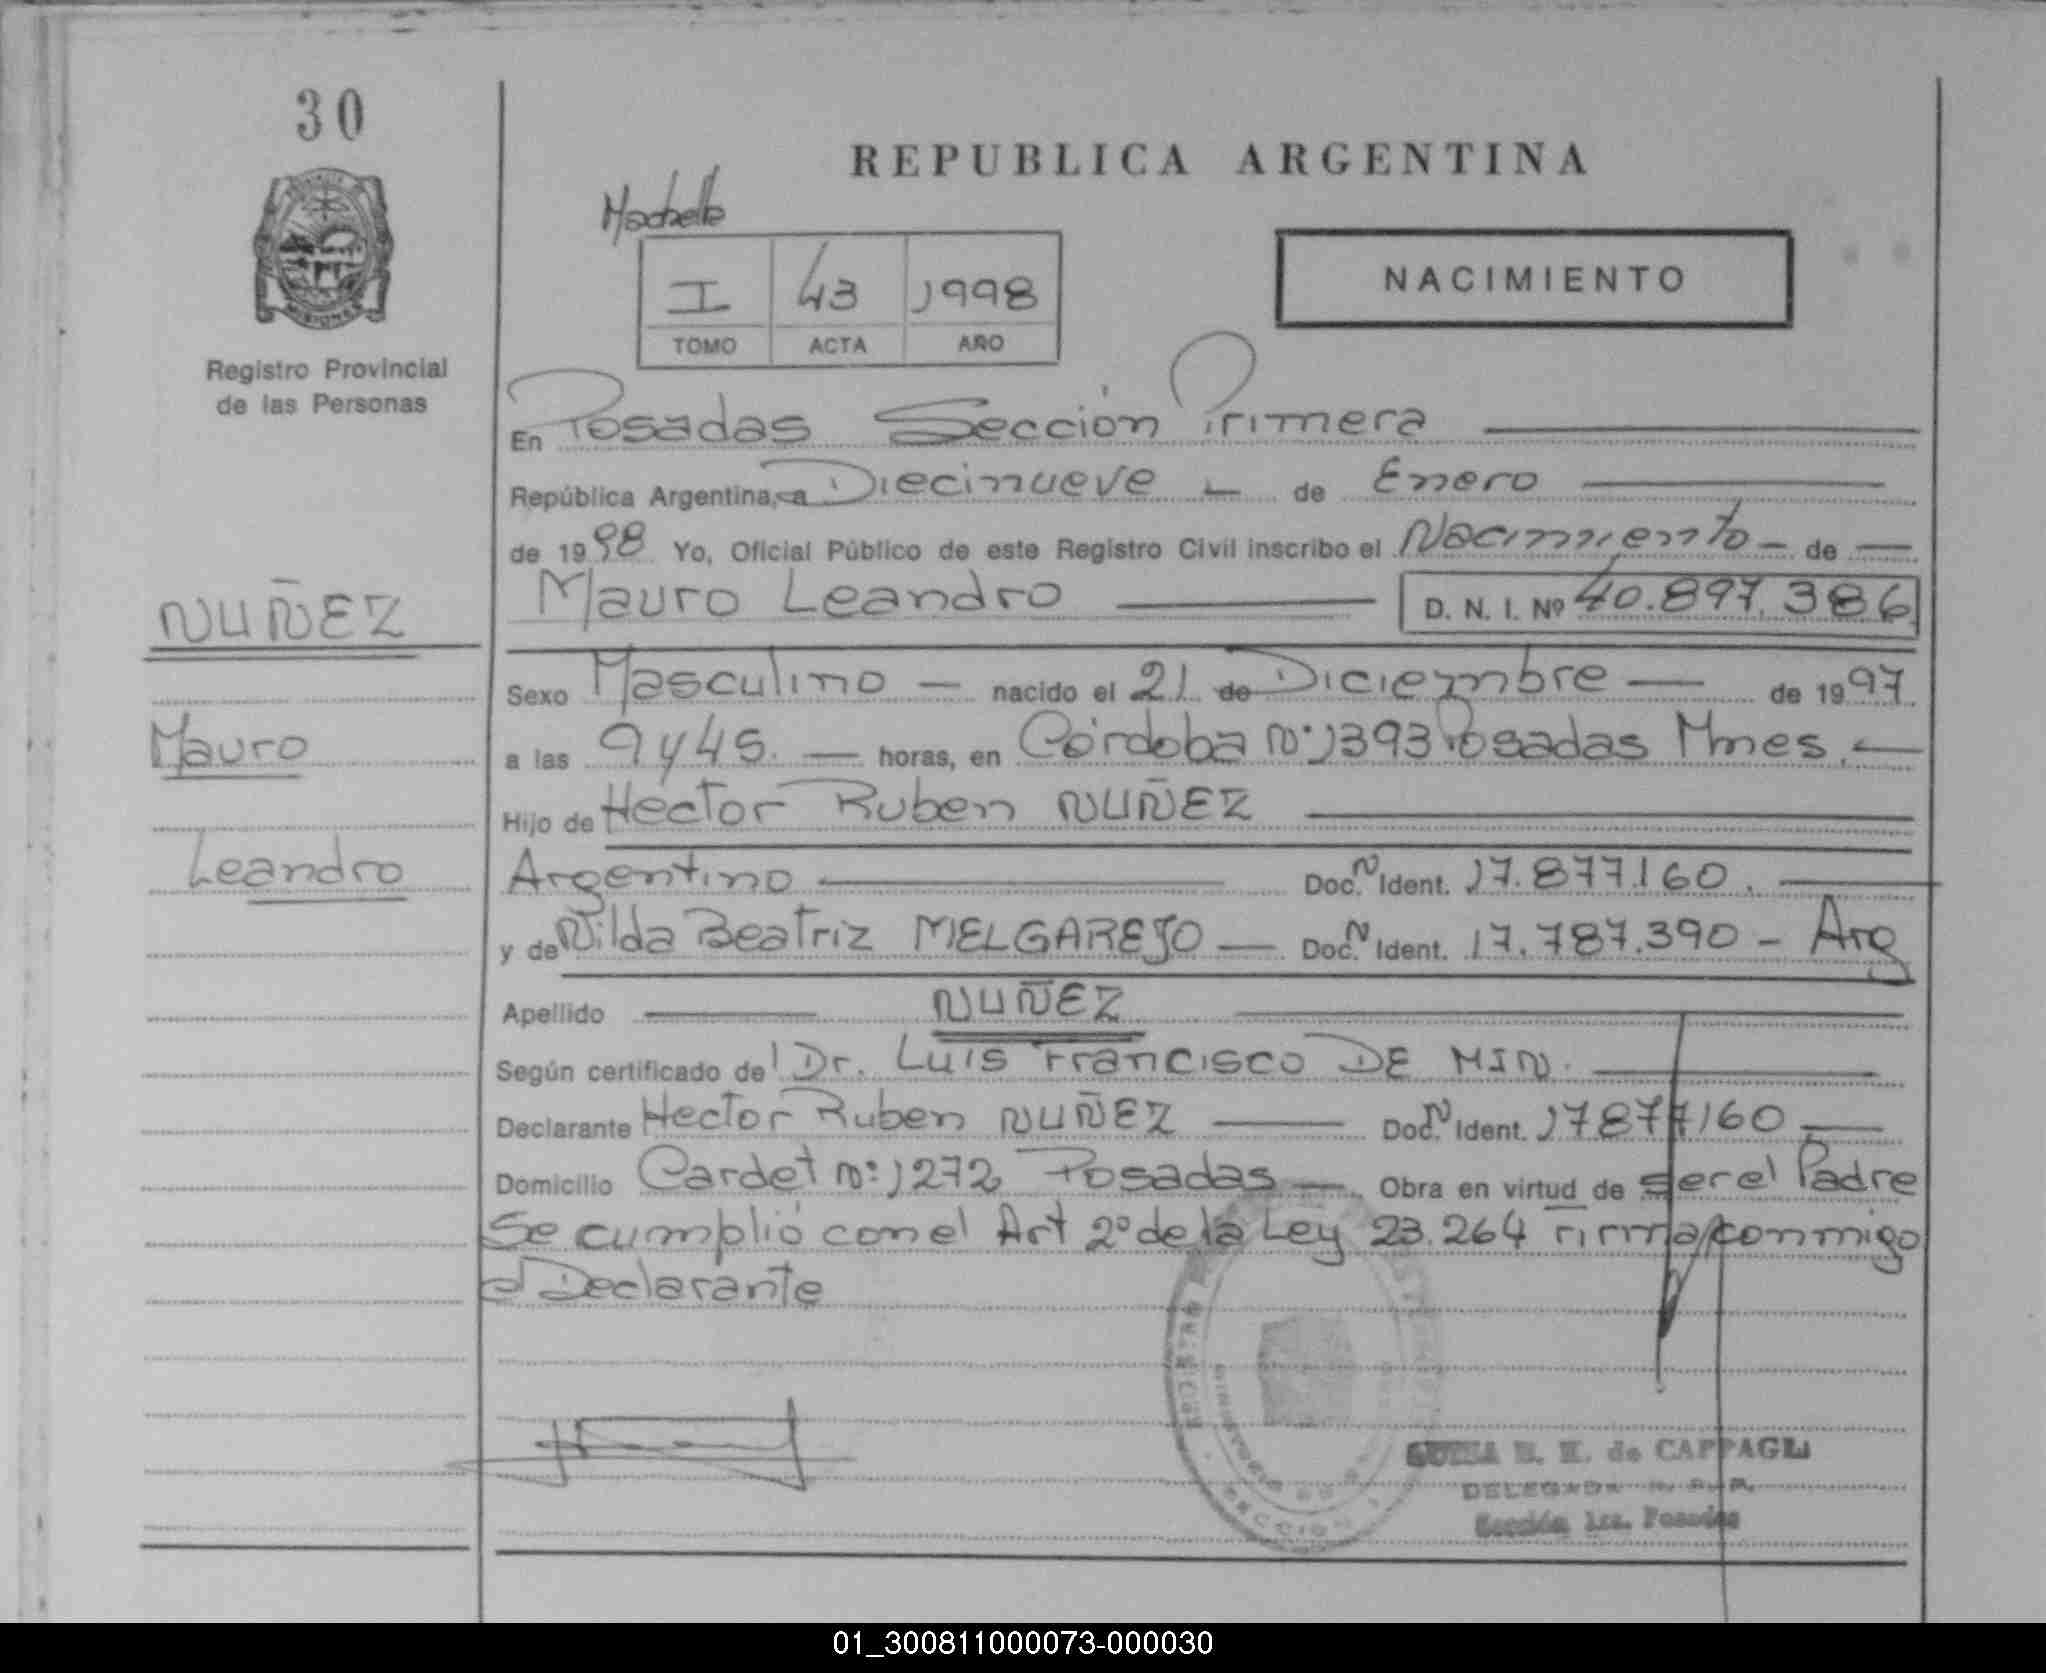 30
REPUBLICA ARGENTINA
I 43 1998
TOMO ACTA AÑO
NACIMIENTO
MISIONES
Registro Provincial
de las Personas
En Posadas Sección Primera
República Argentina, a Diecinueve de Enero
de 1998 Yo, Oficial Público de este Registro Civil inscribo el Nacimiento - de
NUÑEZ
Mauro Leandro D. N. I. Nº 40.897.386
Sexo Masculino - nacido el 21 de Diciembre - de 1997
Mauro
a las 9 y 45. - horas, en Córdoba Nº 1393 Posadas Mnes.
Hijo de Hector Ruben NUÑEZ
Leandro
Argentino Doc. N Ident. 17.877.160.
y de Nilda Beatriz MELGAREJO - Doc. N Ident. 17.787.390 - Arg
Apellido NUÑEZ
Según certificado del Dr. Luis Francisco DE MIN.
Declarante Hector Ruben NUÑEZ Doc. N Ident. 17877160
Domicilio Cardet Nº: 1272 Posadas - Obra en virtud de ser el Padre
Se cumplió con el Art 2º de la Ley 23.264 Firma conmigo
el Declarante
de CAPPAGLI
DELEGADA
Sección 1ra. Posadas
01_300811000073-000030